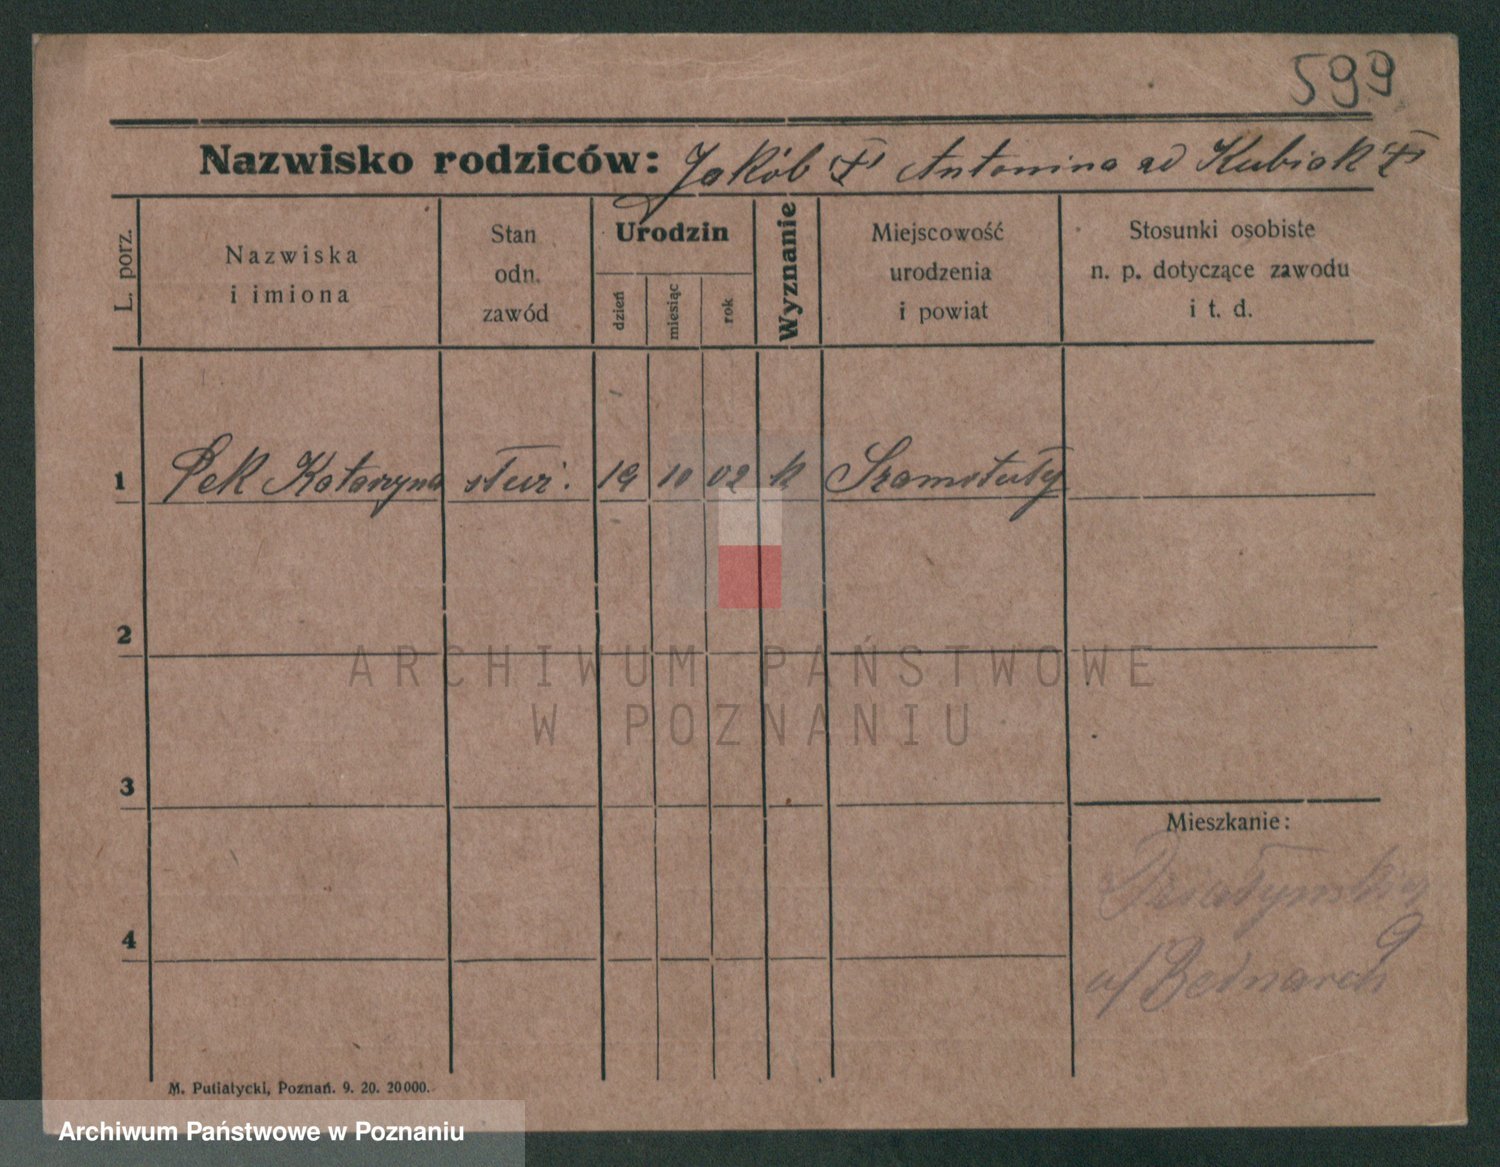 599
Nazwisko rodziców: Jakób Antonina
L. porz.
Nazwiska
i imiona
Stan
odn.
zawód
Urodzin
dzień
miesiąc
rok
Wyznanie
Miejscowość
urodzenia
i powiat
Stosunki osobiste
n. p. dotyczące zawodu
i t. d.
1 Pek Katarzyna służ. 19 10 02 k Szamotuły
2
ARCHIWUM PAŃSTWOWE
W POZNANIU
3
Mieszkanie:
Działyńskich 9
u/ Bednarek
4
M. Putiatycki, Poznań. 9. 20. 20000.
Archiwum Państwowe w Poznaniu